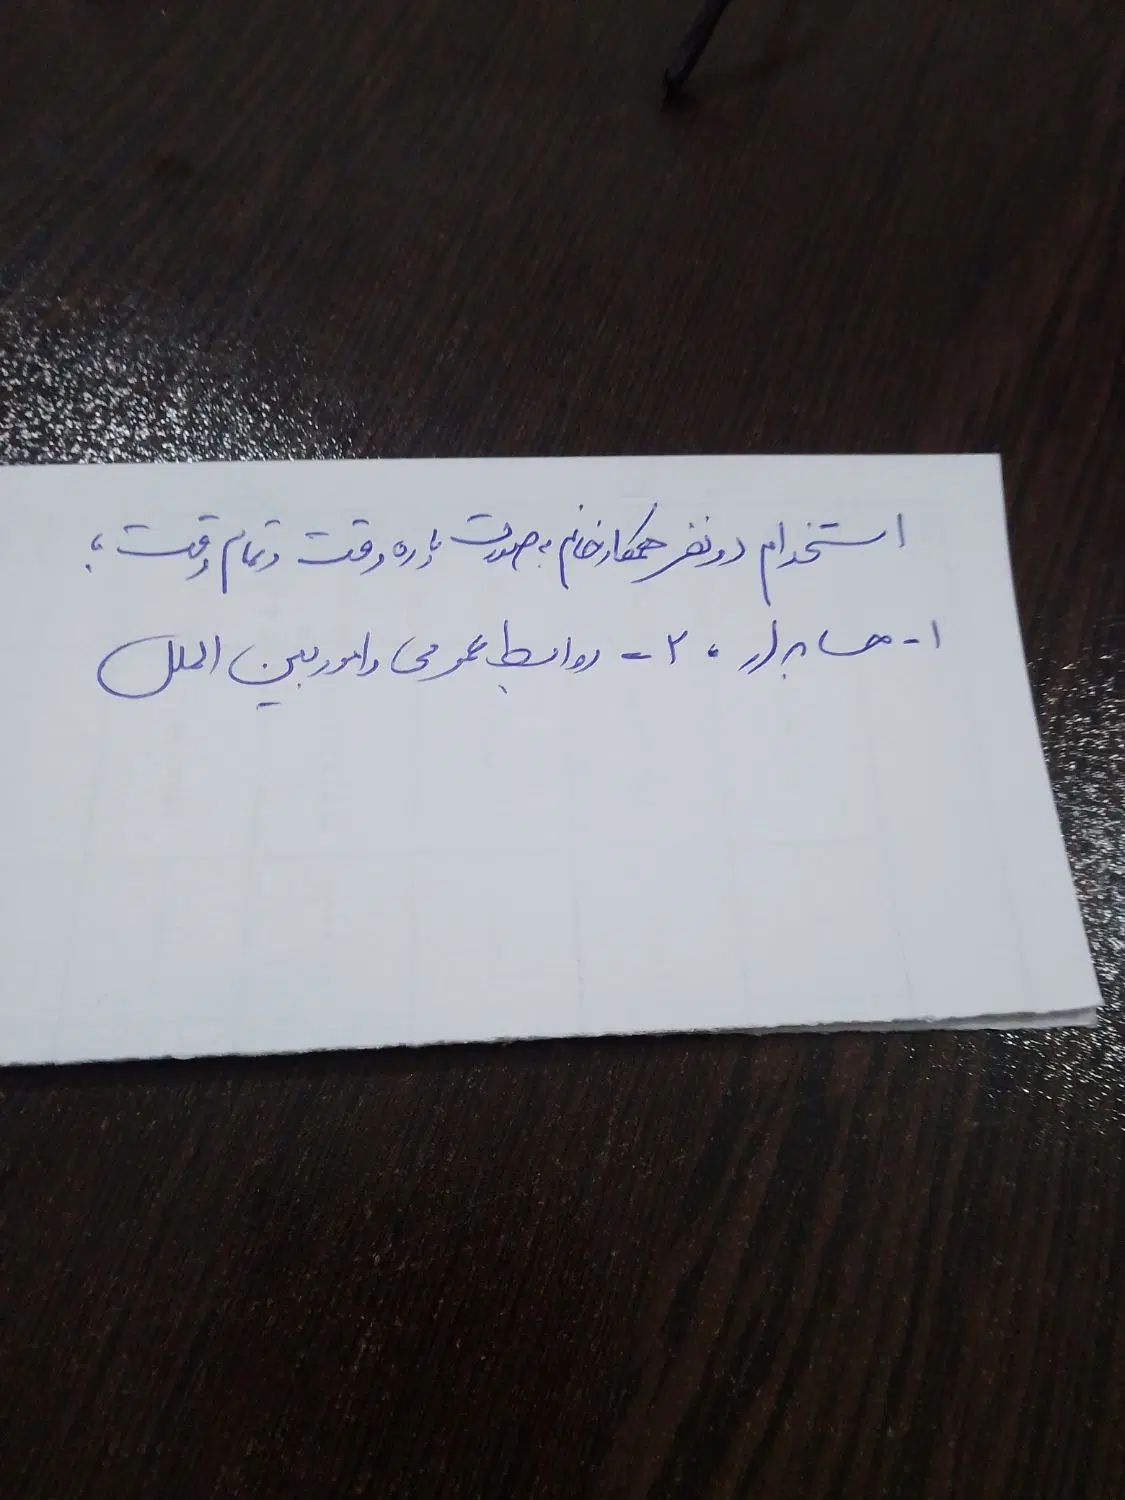 استخدام دو نفر همکار خانم به صورت پاره وقت و تمام وقت؛
۱- حسابدار ، ۲- روابط عمومی و امور بین الملل